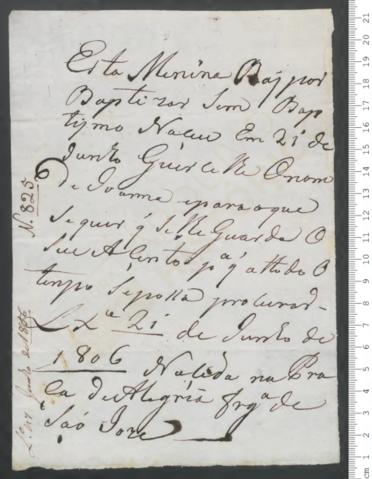 Esta Menina Vaj por
Baptizar Sem Bap
tysmo Naceu Em 21 de
Junho Quer ce lhe o nom
de Joanna epara o que
Se quer q̃ Se lhe Guarde O
Seu Acento pª q̃ atto do O
tempo Se possa procurad-
Lxª 21 de Junho de
1806 Nacida na Pra
ca de Alegria frgª de
São Joze
N.º 825